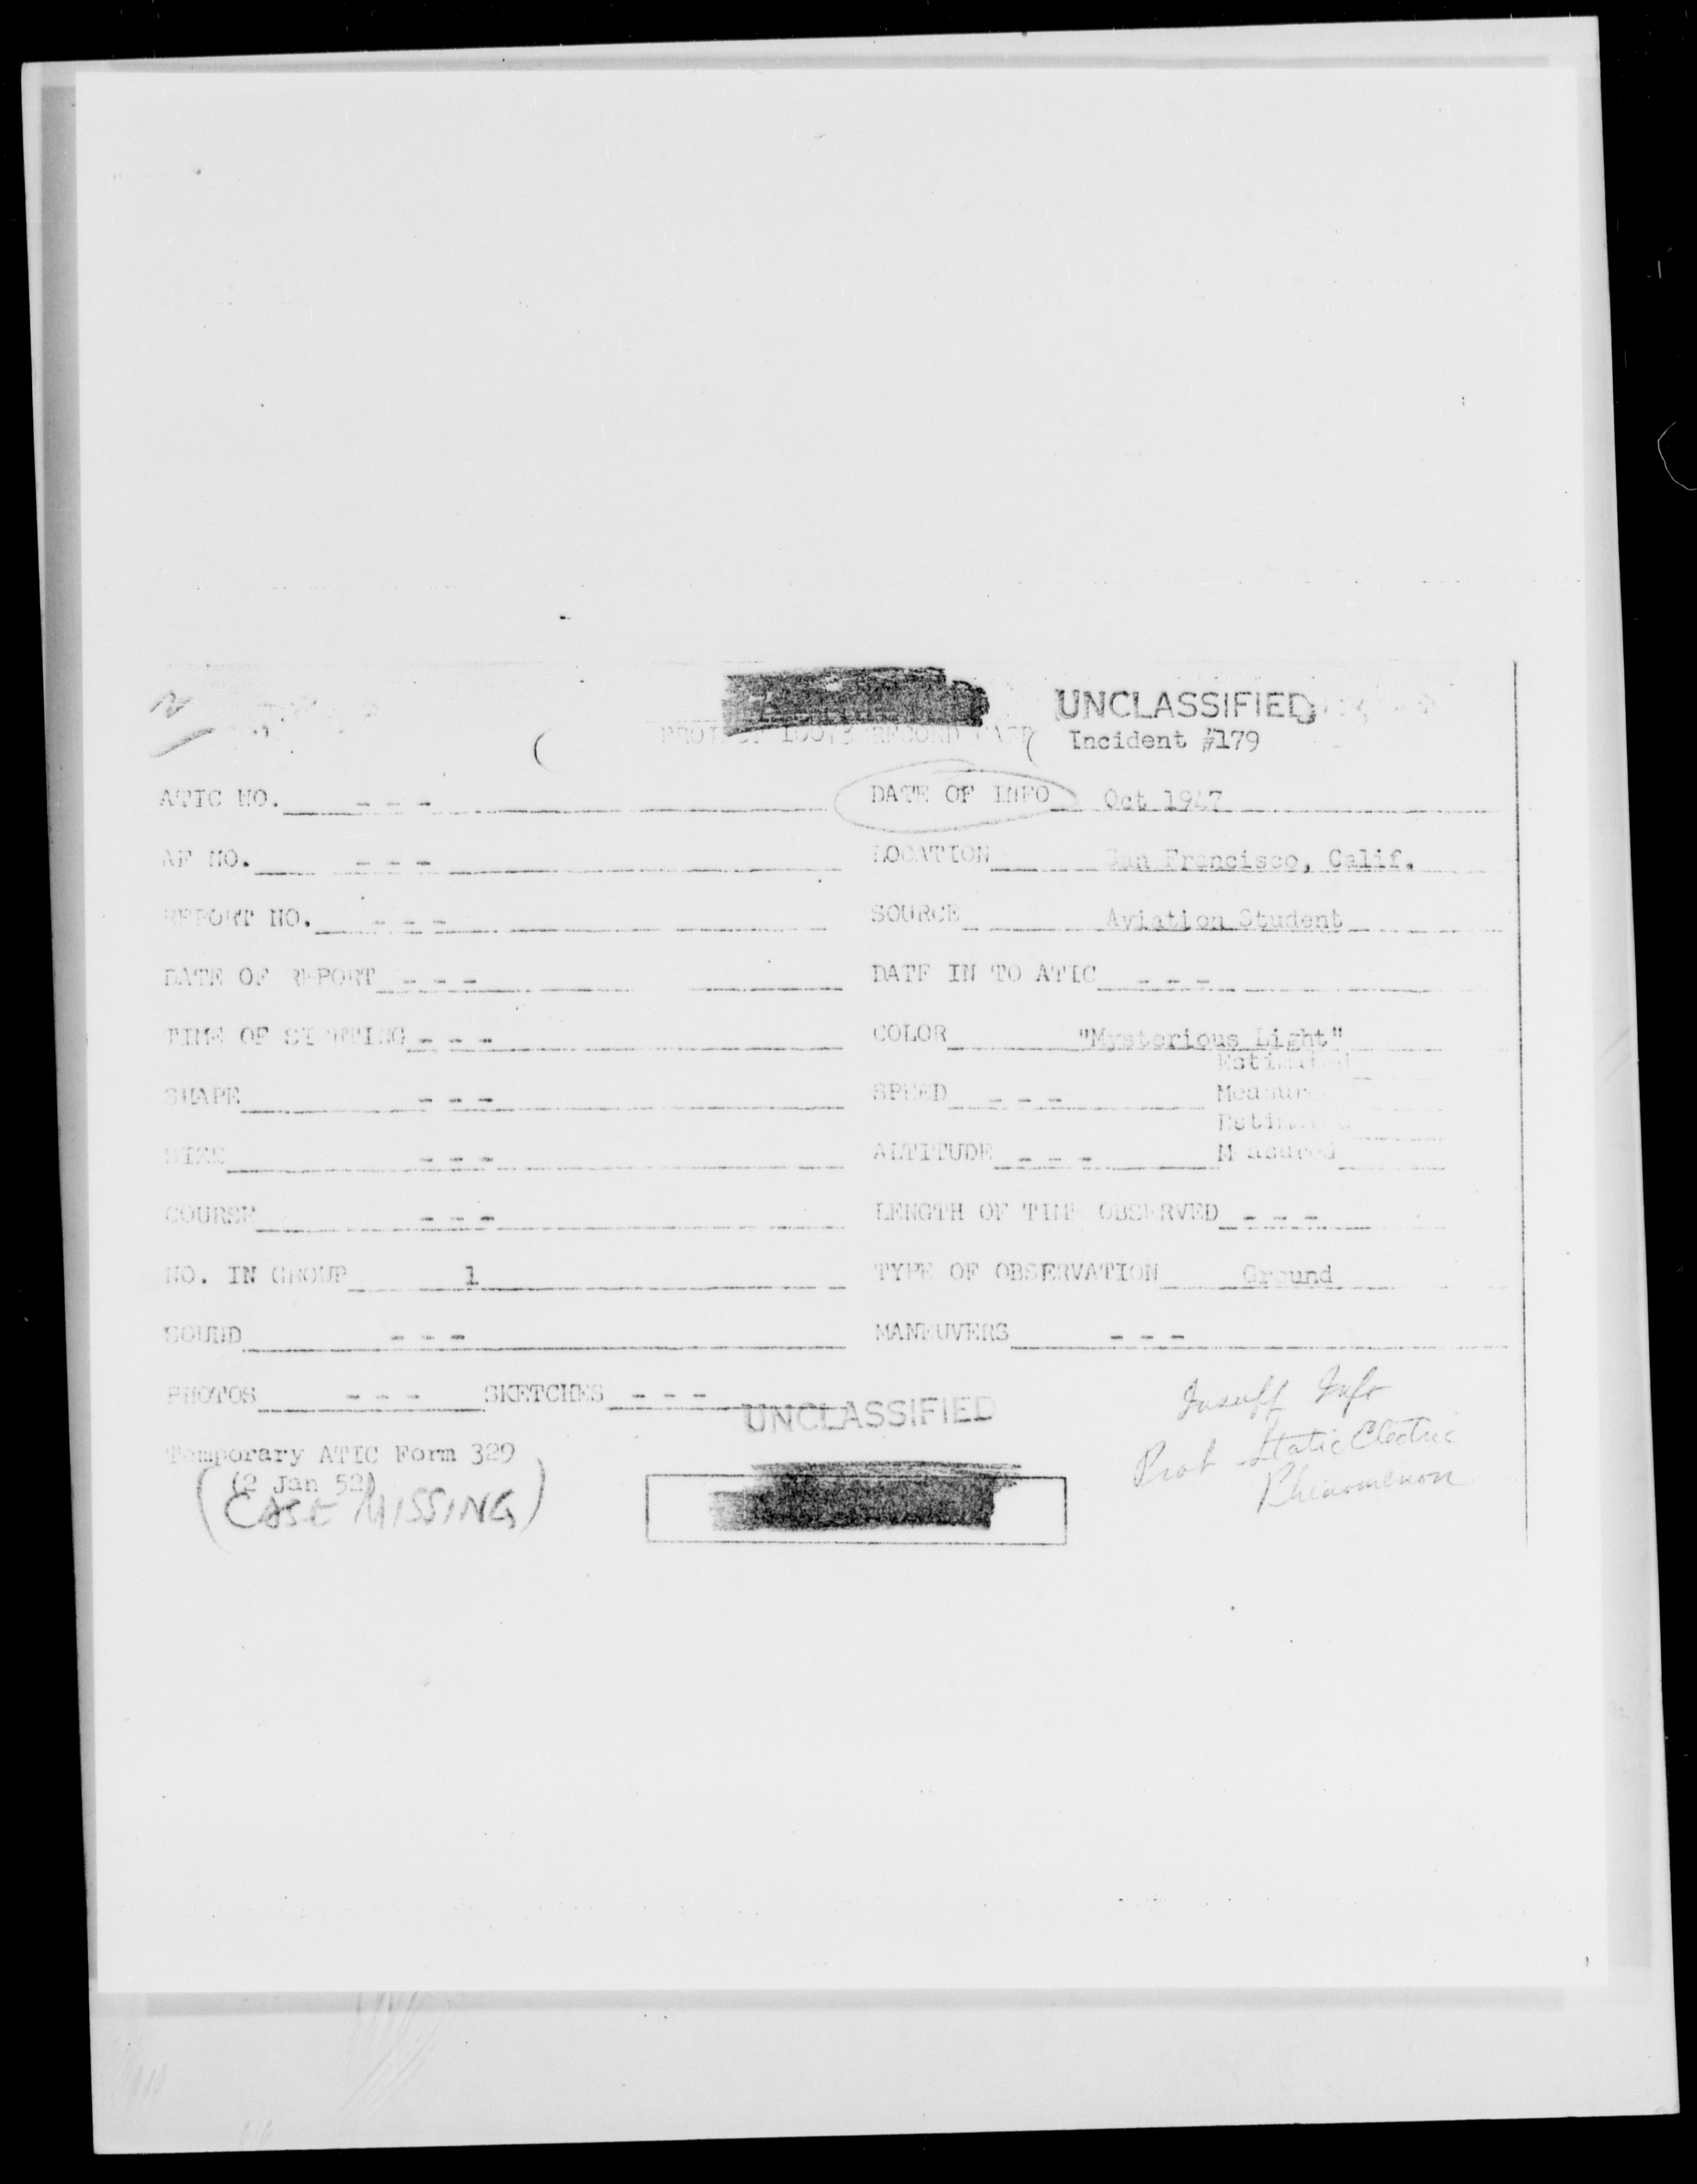 UNCLASSIFIED
PROJECT 10073 RECORD CARD
Incident #179
ATIC NO. - - - DATE OF INFO Oct 1947
AF NO. - - - LOCATION San Francisco, Calif.
REPORT NO. - - - SOURCE Aviation Student
DATE OF REPORT - - - DATE IN TO ATIC - - -
TIME OF SIGHTING - - - COLOR "Mysterious Light"
Estimated
SHAPE - - - SPEED - - - Measured
Estimated
SIZE - - - ALTITUDE - - - Measured
COURSE - - - LENGTH OF TIME OBSERVED - - -
NO. IN GROUP 1 TYPE OF OBSERVATION Ground
SOUND - - - MANEUVERS - - -
PHOTOS - - - SKETCHES - - -
UNCLASSIFIED
Insuff Info
Prob Static Electric
Phenomenon
Temporary ATIC Form 329
(2 Jan 52)
(CASE MISSING)